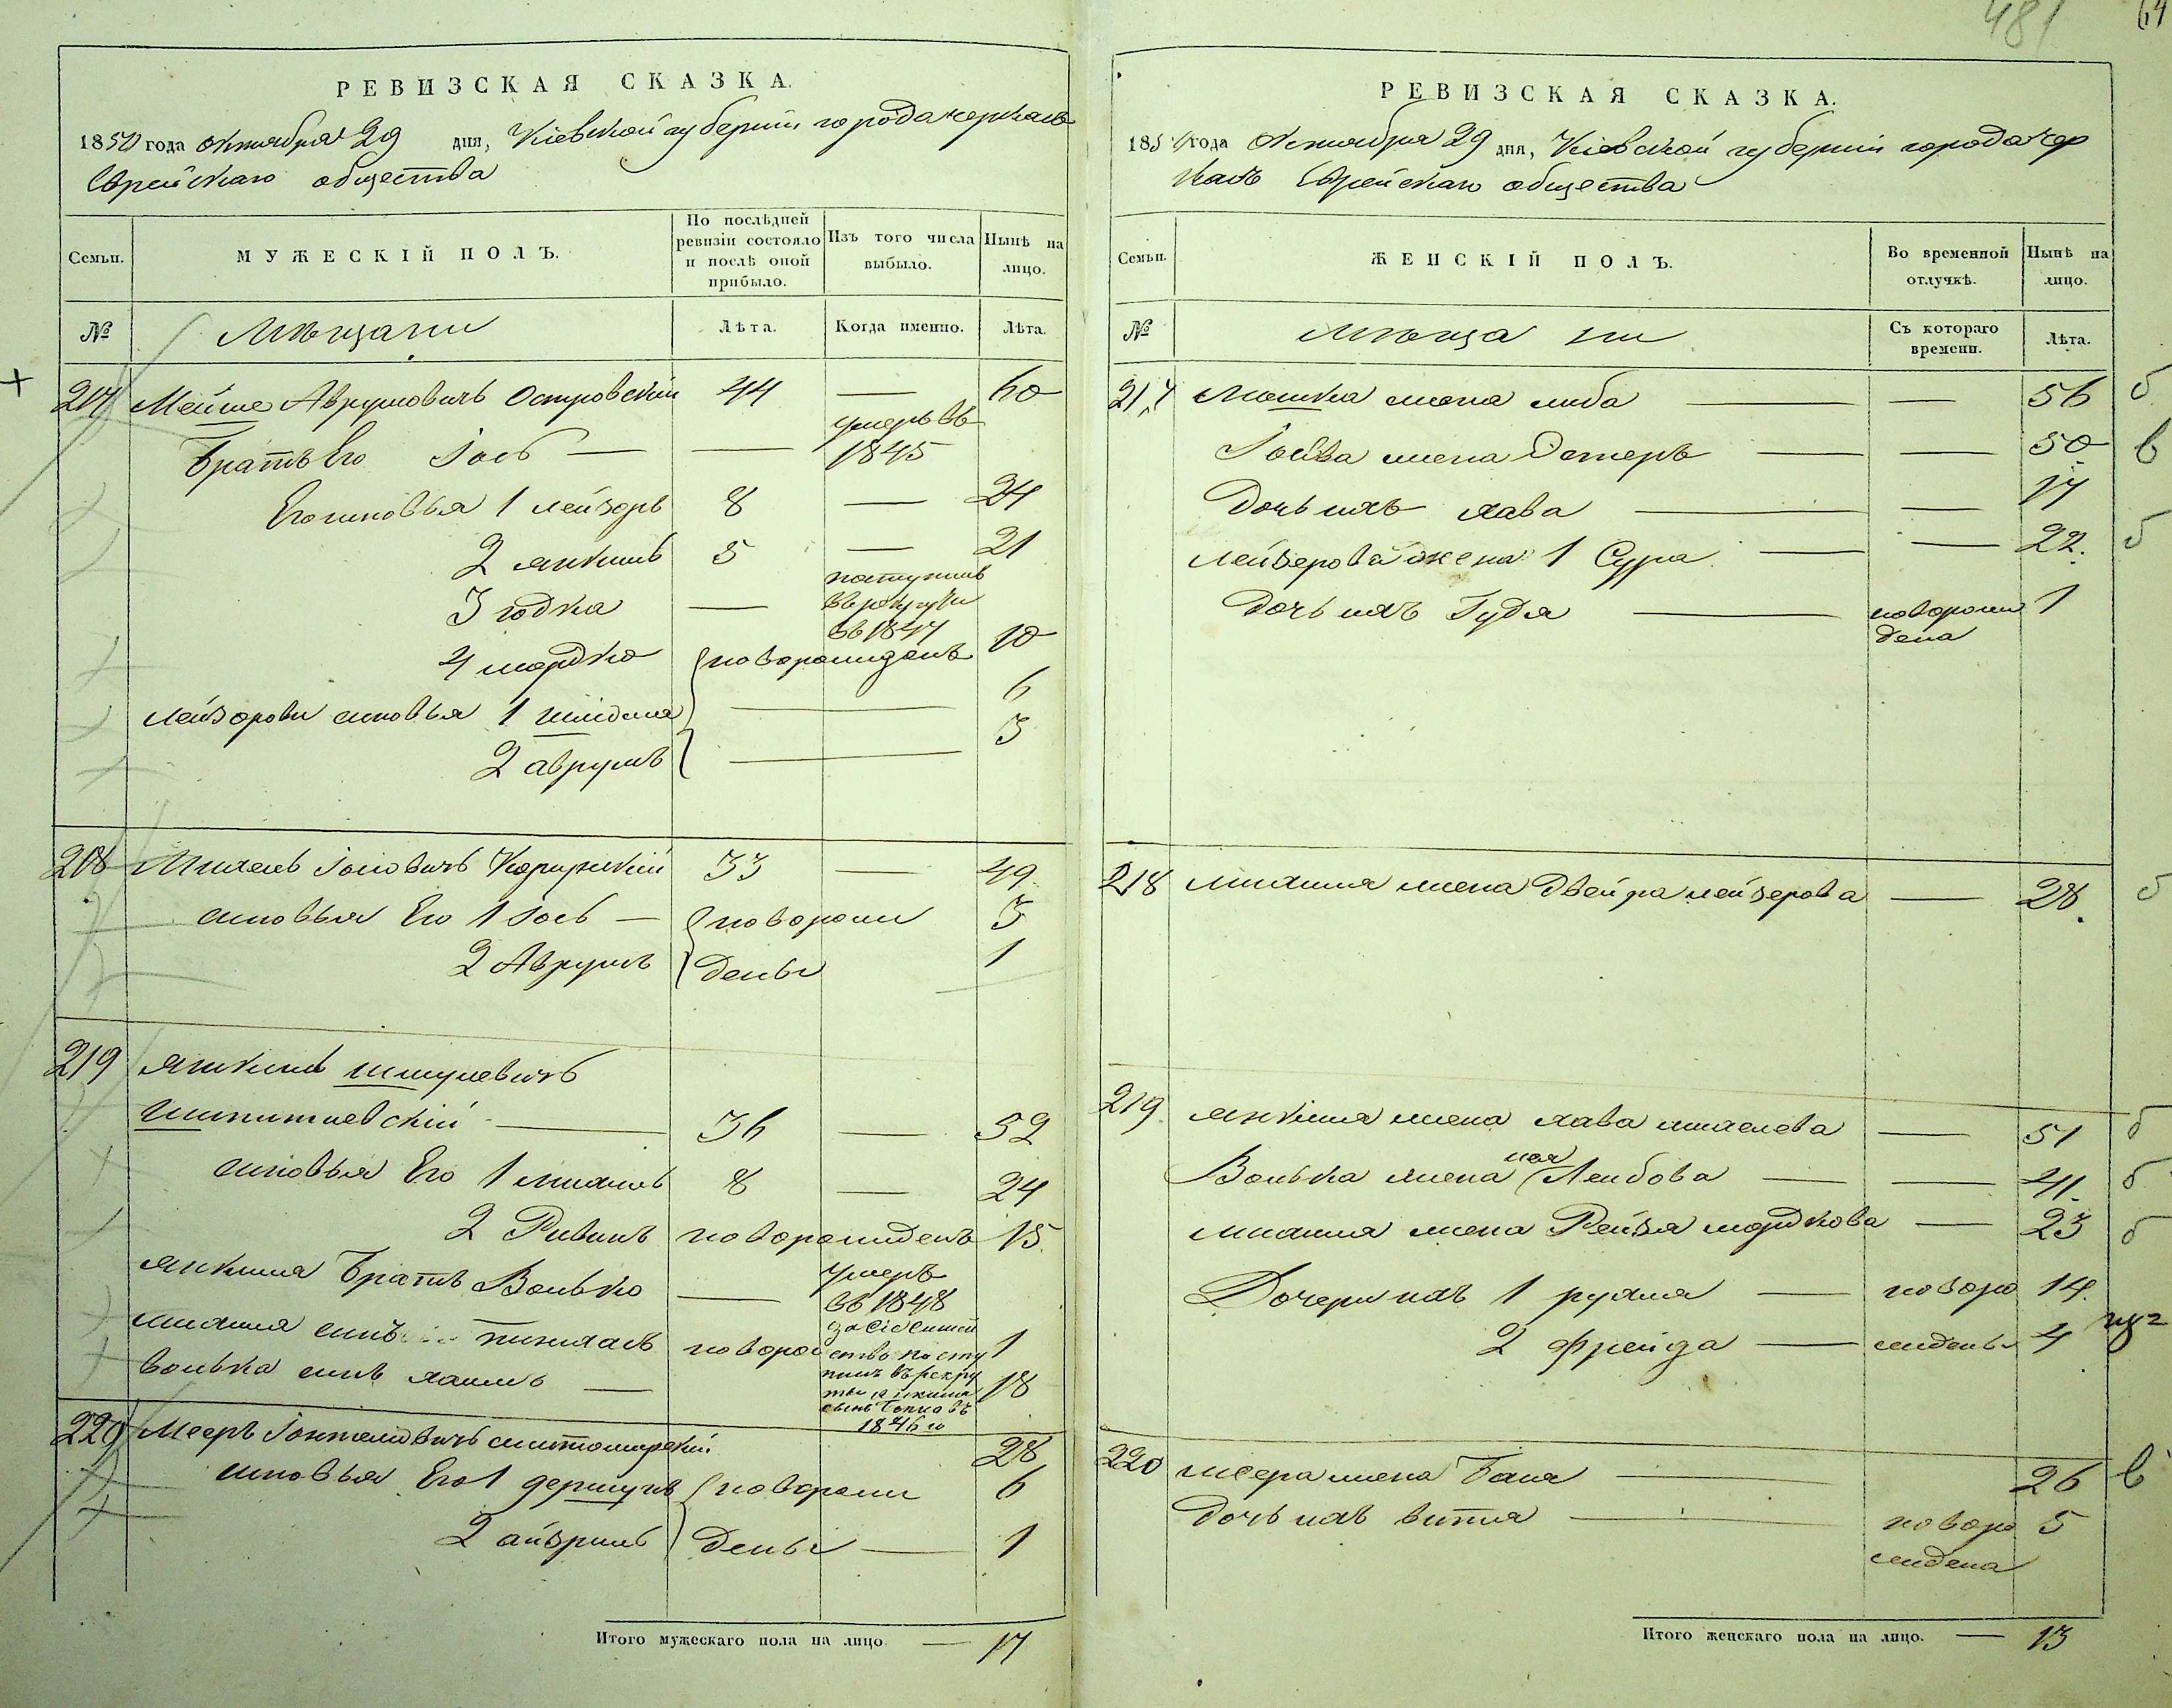 481
64
РЕВИЗСКАЯ СКАЗКА.
1850 года октября 29 дня, Кіевской губерніи города черкасъ
Еврейскаго общества
Семьи.
МУЖЕСКІЙ ПОЛЪ.
По послѣдней ревизіи состояло и послѣ оной прибыло.
Изъ того числа выбыло.
Нынѣ на лицо.
№
Мѣщани
Лѣта.
Когда именно.
Лѣта.
217 Мошко Аврумовичъ Островскій 44 — 60
Братъ Его Іось — — умеръ въ 1845
Его сыновья 1 лейзоръ 8 — 24
2 янкиль 5 — 21
3 годка — поступилъ в рекруты въ 1847
4 мордко новорожденъ 10
лейзоровы сыновья 1 — 6
2 аврумъ — 3
218 Михель Іосиовичъ 33 — 49
сыновья Его 1 Іось — новорож 3
2 Аврумъ дены 1
219 янкель шмулевичъ
36 — 52
сыновья Его 1 михиль 8 — 24
2 Рувинъ новорожденъ 15
янкиля братъ Волько — умеръ въ 1848
михиля сынъ пинхасъ новорож 1
волька сынъ хаимъ — 18
за сіе семейство поступилъ въ рекруты янкиля сынъ въ 1846 го
220 Мееръ житомирскій 28
сыновья Его 1 новорож 6
2 айзрииль дены — 1
Итого мужескаго пола на лицо — 17
РЕВИЗСКАЯ СКАЗКА.
1850 года Октября 29 дня, Кіевской губерніи города чер
касъ Еврейскаго общества
Семьи.
ЖЕНСКІЙ ПОЛЪ.
Во временной отлучкѣ.
Нынѣ на лицо.
№
мѣща ни
Съ котораго времени.
Лѣта.
217 Мошка жена либа — — 56 б
Іоська жена Эстеръ — — 50 в
дочь ихъ хава — — 17
лейзерова жена 1 Сура — — 22. б
дочь ихъ Гудя — новорож дена 1
218 михиля жена двейра лейзерова — 28. б
219 янкиля жена хава михелева — 51 б
Волька жена Лейбова — — 41. б
михиля жена Рейзя мордкова — 23 б
Дочери ихъ 1 рухля — новоро 14.
2 фрейда — жденны 4
220 меера жена Бася — 26 в
дочь ихъ витя — новоро ждена 5
Итого женскаго пола на лицо. — 13